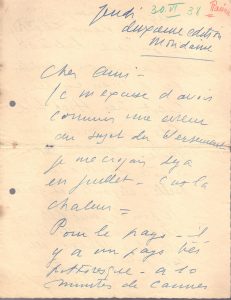 jeudi 30.VI 38
deuxième édition
Mondaine
Cher ami -
Je m'excuse d'avoir
commis une erreur
au sujet du Versement
je me croyais déjà
en juillet - C'est la
chaleur =
Pour le pays - il
y a un pays très
pittoresque - à 10
minutes de Cannes